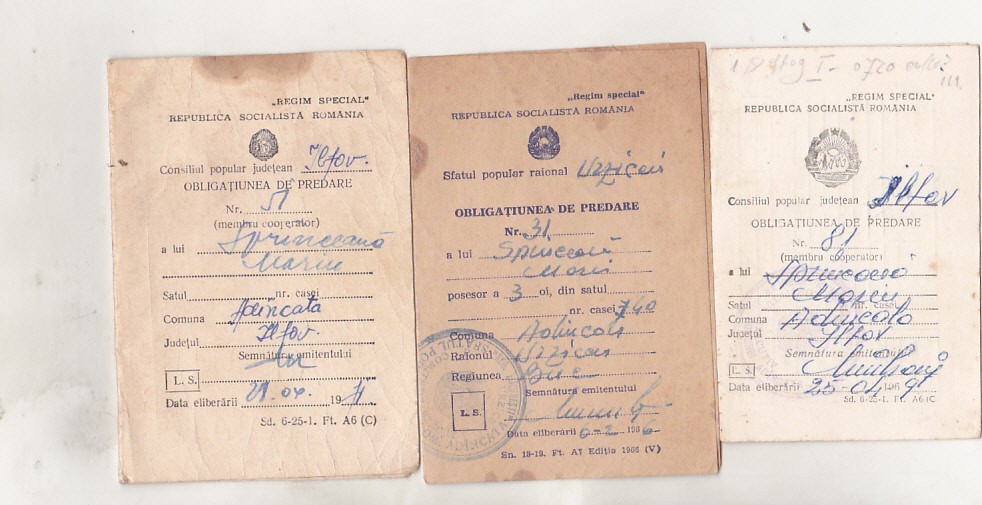 „REGIM SPECIAL"
REPUBLICA SOCIALISTĂ ROMÂNIA
Consiliul popular județean Ilfov.
OBLIGAȚIUNEA DE PREDARE
Nr. 51
(membru cooperator)
a lui Sprinceană
Marin
Satul nr. casei
Comuna Adîncata
Județul Ilfov.
Semnătura emitentului
L. S.
Data eliberării 21.04. 1971
Sd. 6-25-1. Ft. A6 (C)
„Regim special"
REPUBLICA SOCIALISTĂ ROMÂNIA
Sfatul popular raional Urziceni
OBLIGAȚIUNEA DE PREDARE
Nr. 31
a lui
posesor a 3 oi, din satul
nr. casei 740
Comuna Adincata
Raionul Urziceni
Regiunea Buc
Semnătura emitentului
L. S.
Data eliberării 6-2 1966
Sn. 18-19. Ft. A7 Ediția 1966 (V)
„REGIM SPECIAL"
REPUBLICA SOCIALISTĂ ROMÂNIA
Consiliul popular județean Ilfov
OBLIGAȚIUNEA DE PREDARE
Nr. 81
(membru cooperator)
a lui
Satul nr. casei
Comuna Adincata
Județul Ilfov
Semnătura emitentului
L. S.
Data eliberării 25-04 1969
Sd. 6-25-1. Ft. A6 (C